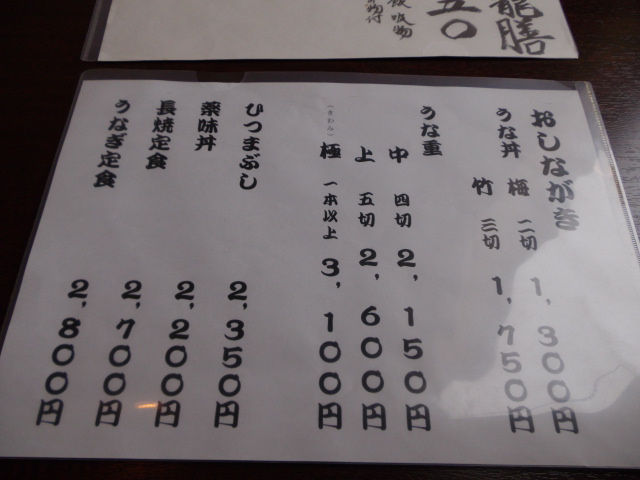 おしながき
うな丼 梅 二切 1,300円
竹 三切 1,750円
うな重
中 四切 2,150円
上 五切 2,600円
極 (きわみ) 一本以上 3,100円
ひつまぶし 2,350円
薬味丼 2,200円
長焼定食 2,700円
うなぎ定食 2,800円
龍膳
五〇
飯 吸物
物付